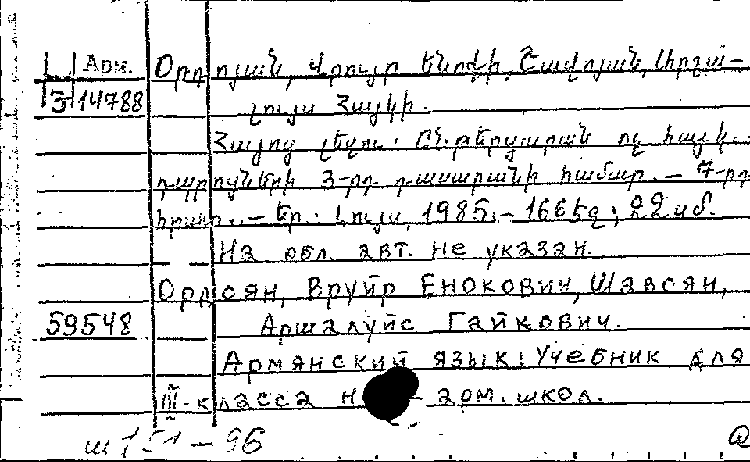 Арм. Օրդոյան, Վրույր Ենոքի, Շավոյան, Արշա-
3 14788 լույս Հայկի.
Հայոց լեզու: Ընթերցարան ոչ հայկ.
դպրոցների 3-րդ դասարանի համար. – 7-րդ
հրատ. – Եր.: Լույս, 1985. – 166 էջ; 22 սմ.
На обл. авт. не указан.
Ордоян, Вруйр Енокович, Шавоян,
59548 Аршалуйс Гайкович.
Армянский язык: Учебник для
III-класса арм. школ.